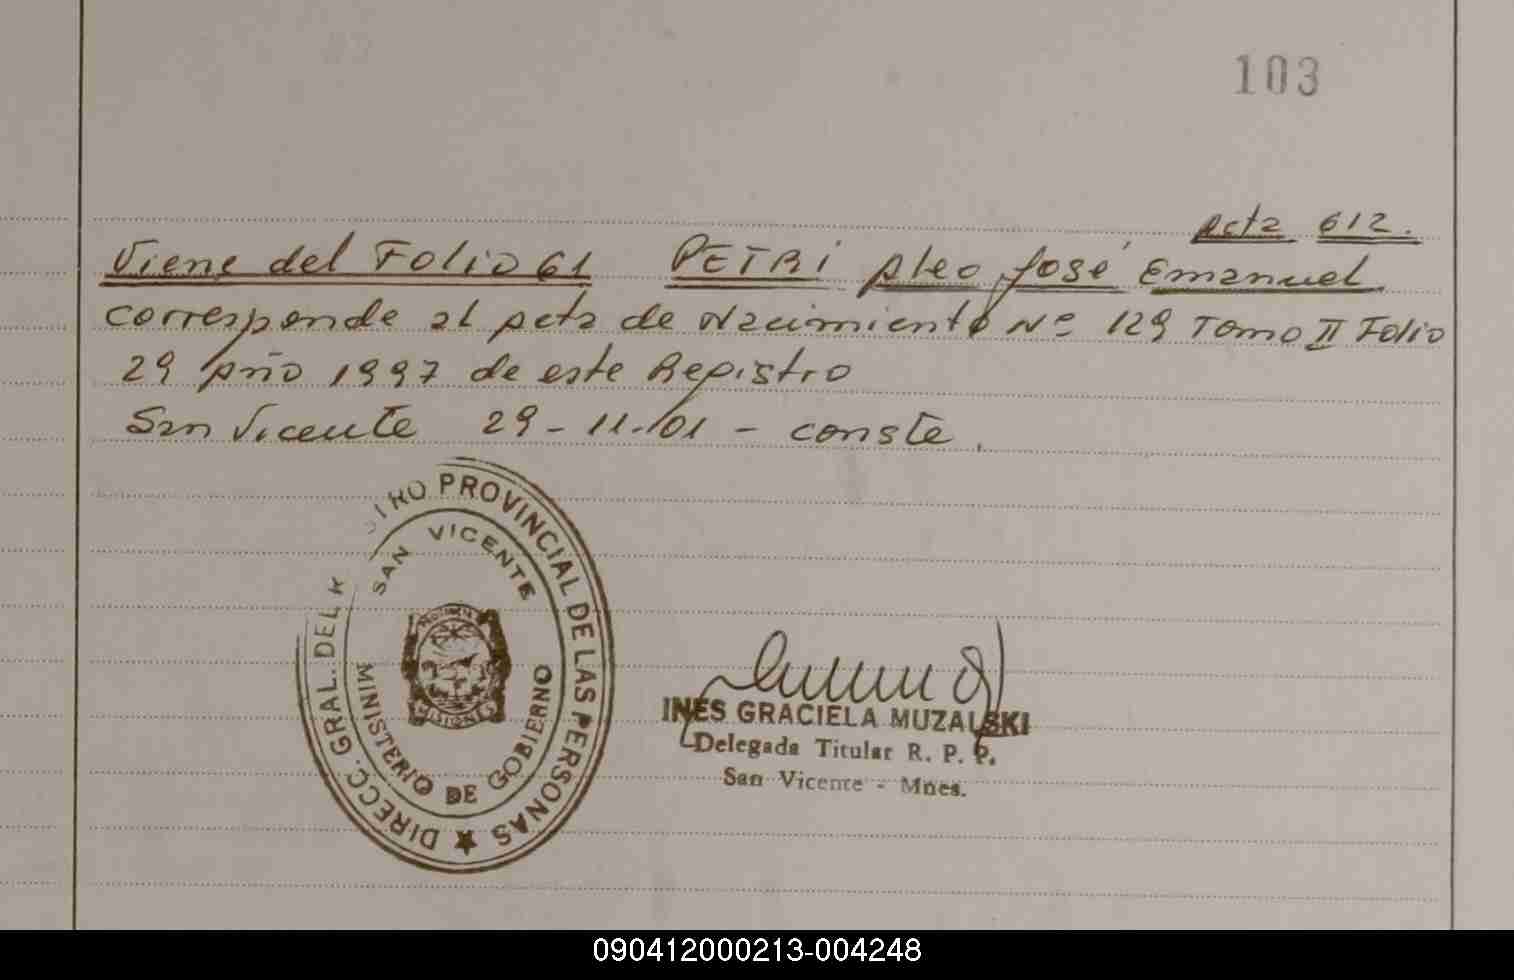 103
Acta 612.
Viene del Folio 61 PETRI José Emanuel
corresponde al Acta de Nacimiento Nº 129 Tomo II Folio
29 Año 1997 de este Registro
San Vicente 29-11-01 - conste.
DIRECC. GRAL. DEL R STRO PROVINCIAL DE LAS PERSONAS
SAN VICENTE
MISIONES
MINISTERIO DE GOBIERNO
INES GRACIELA MUZALSKI
Delegada Titular R. P. P.
San Vicente - Mnes.
090412000213-004248